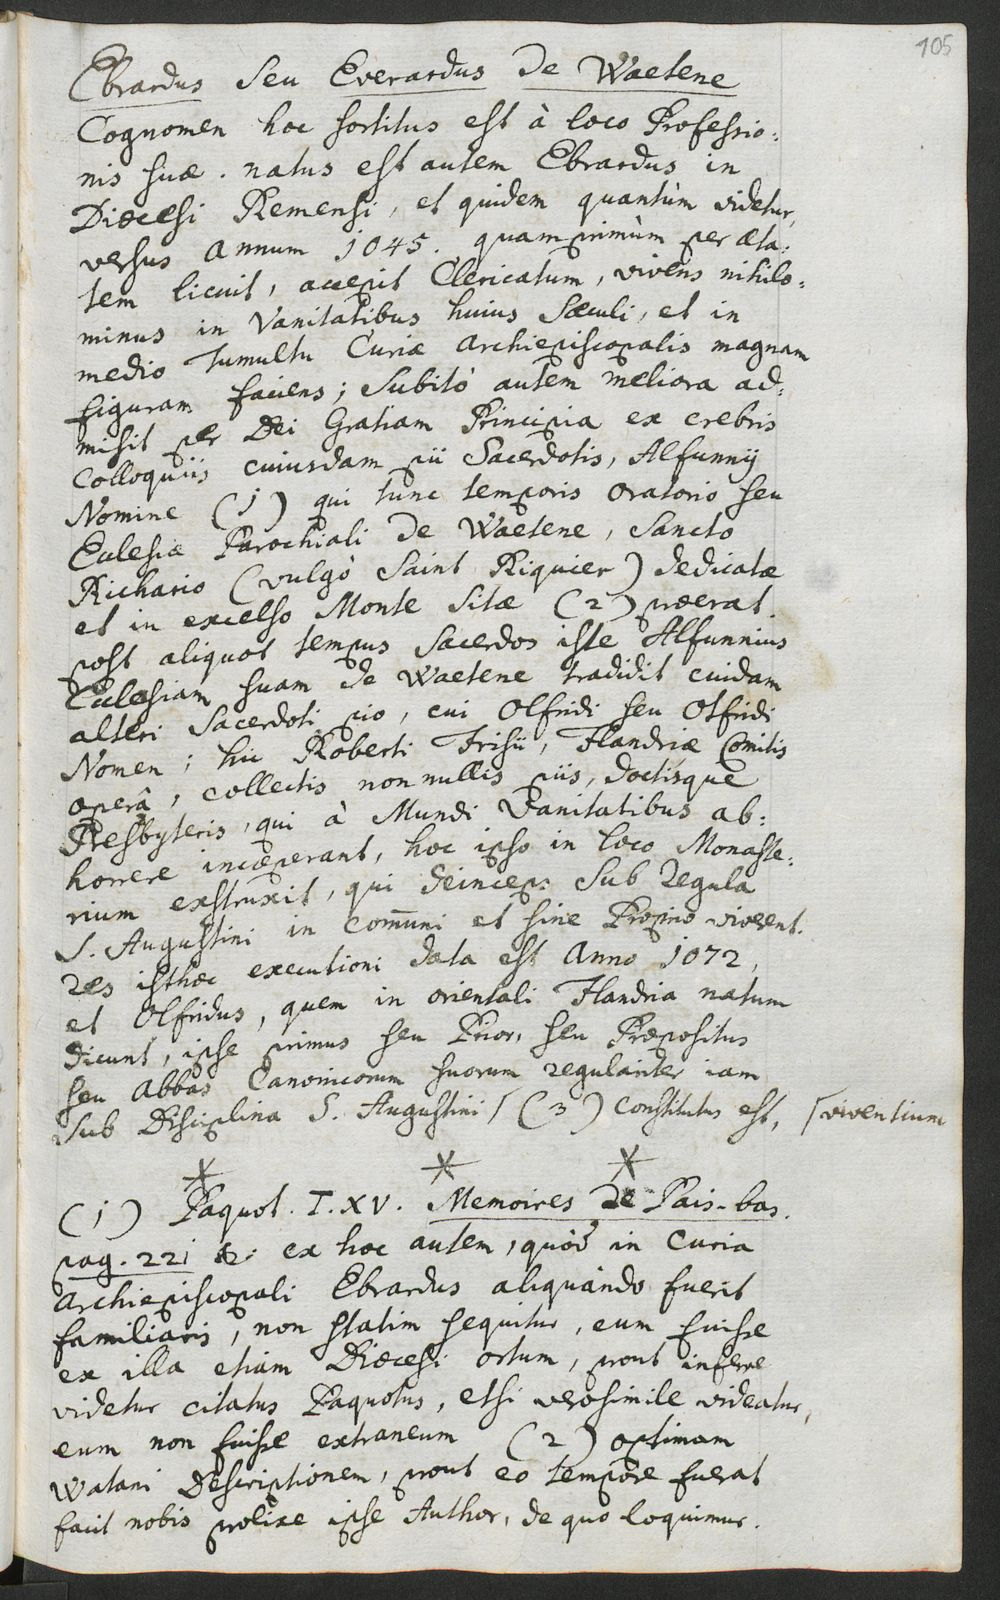 105
Ebrardus seu Everardus de Waetene
Cognomen hoc sortitus est à loco Professio:
nis suæ. natus est autem Ebrardus in
Diœcesi Remensi, et quidem quantùm videtur,
versus annum 1045. quamprimùm per æta:
tem licuit, accepit Clericatum, vivens nihilo:
minus in Vanitatibus huius Sæculi, et in
medio tumultu Curiæ Archiepiscopalis magnam
figuram faciens; Subitò autem meliora ad:
misit per Dei Gratiam Principia ex crebris
Colloquiis cuiusdam pii Sacerdotis, Alfunnij
Nomine (1) qui tunc temporis oratorio seu
Eclesiæ Parochiali de Waetene, Sancto
Richario (vulgò Saint Riquier) dedicatæ
et in excelso Monte Sitæ (2) præerat.
post aliquot tempus Sacerdos iste Alfunnius
Eclesiam suam de Waetene tradidit cuidam
alteri Sacerdoti pio, cui Olfridi seu Otfridi
Nomen; hic Roberti Frisii, Flandriæ Comitis
operâ, collectis nonnullis piis, doctisque
Presbyteris, qui à Mundi Vanitatibus ab:
horrere incæperant, hoc ipso in loco Monaste:
rium exstruxit, qui deinceps sub Regula
S. Augustini in com̄uni et sine Proprio viverent.
res isthæc executioni data est Anno 1072,
et Olfridus, quem in orientali Flandria natum
dicunt, ipse primus seu Prior, seu Præpositus
seu Abbas Canonicorum suorum regulariter iam
sub Disciplina S. Augustini ⌈ (3) constitutus est, ⌈viventium
* * *
(1) Paquot. T. XV. Memoires de Païs-bas.
pag. 221 &: ex hoc autem, quòd in Curia
Archiepiscopali Ebrardus aliquando fuerit
familiaris, non statim sequitur, eum fuisse
ex illa etiam Diœcesi ortum, prout inferre
videtur citatus Paquotus, etsi verosimile videatur,
eum non fuisse extraneum (2) optimam
Watani Descriptionem, prout eo tempore fuerat
facit nobis prolixe ipse Author, de quo loquimur.